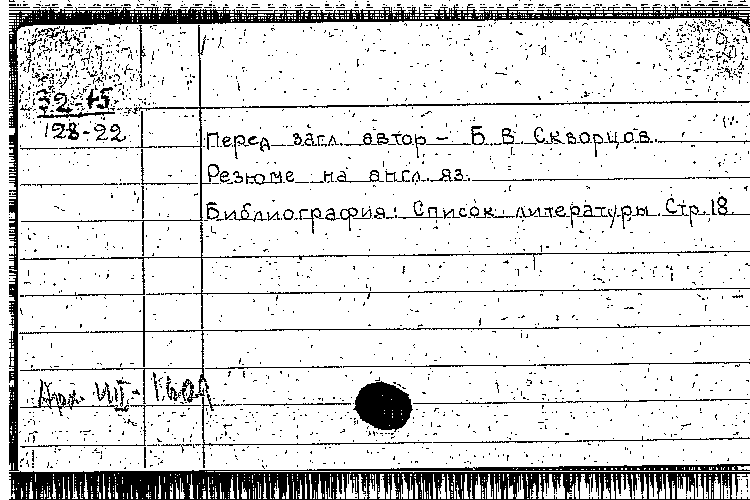 32-15
128-22
Перед загл. автор - Б. В. Скворцов.
Резюме на англ. яз.
Библиография: Список литературы Стр. 18
Арх.